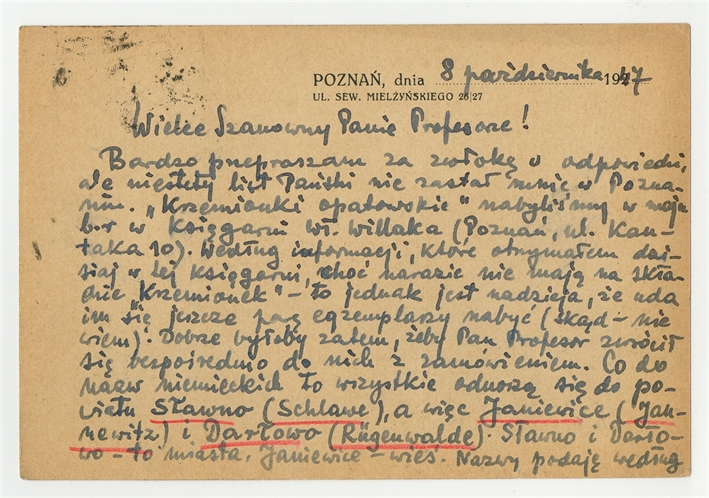 POZNAŃ, dnia 8 października 1947
UL. SEW. MIELŻYŃSKIEGO 26/27
Wielce Szanowny Panie Profesorze!
Bardzo przepraszam za zwłokę w odpowiedzi,
ale niestety list Pański nie zastał mnie w Pozna-
niu. „Krzemionki opatowskie" nabyliśmy w maju
b.r w Księgarni Wł. Willaka (Poznań, ul. Kan-
taka 10). Według informacji, które otrzymałem dzi-
siaj w tej księgarni, choć narazie nie mają na skła-
dzie „Krzemionek" – to jednak jest nadzieja, że uda
im się jeszcze parę egzemplarzy nabyć (skąd – nie
wiem). Dobrze byłoby zatem, żeby Pan Profesor zwrócił
się bezpośrednio do nich z zamówieniem. Co do
nazw niemieckich to wszystkie odnoszą się do po-
wiatu Sławno (Schlawe), a więc Janiewice (Jan-
newitz) i Darłowo (Rügenwalde). Sławno i Darło-
wo – to miasta, Janiewice – wieś. Nazwy podaję według